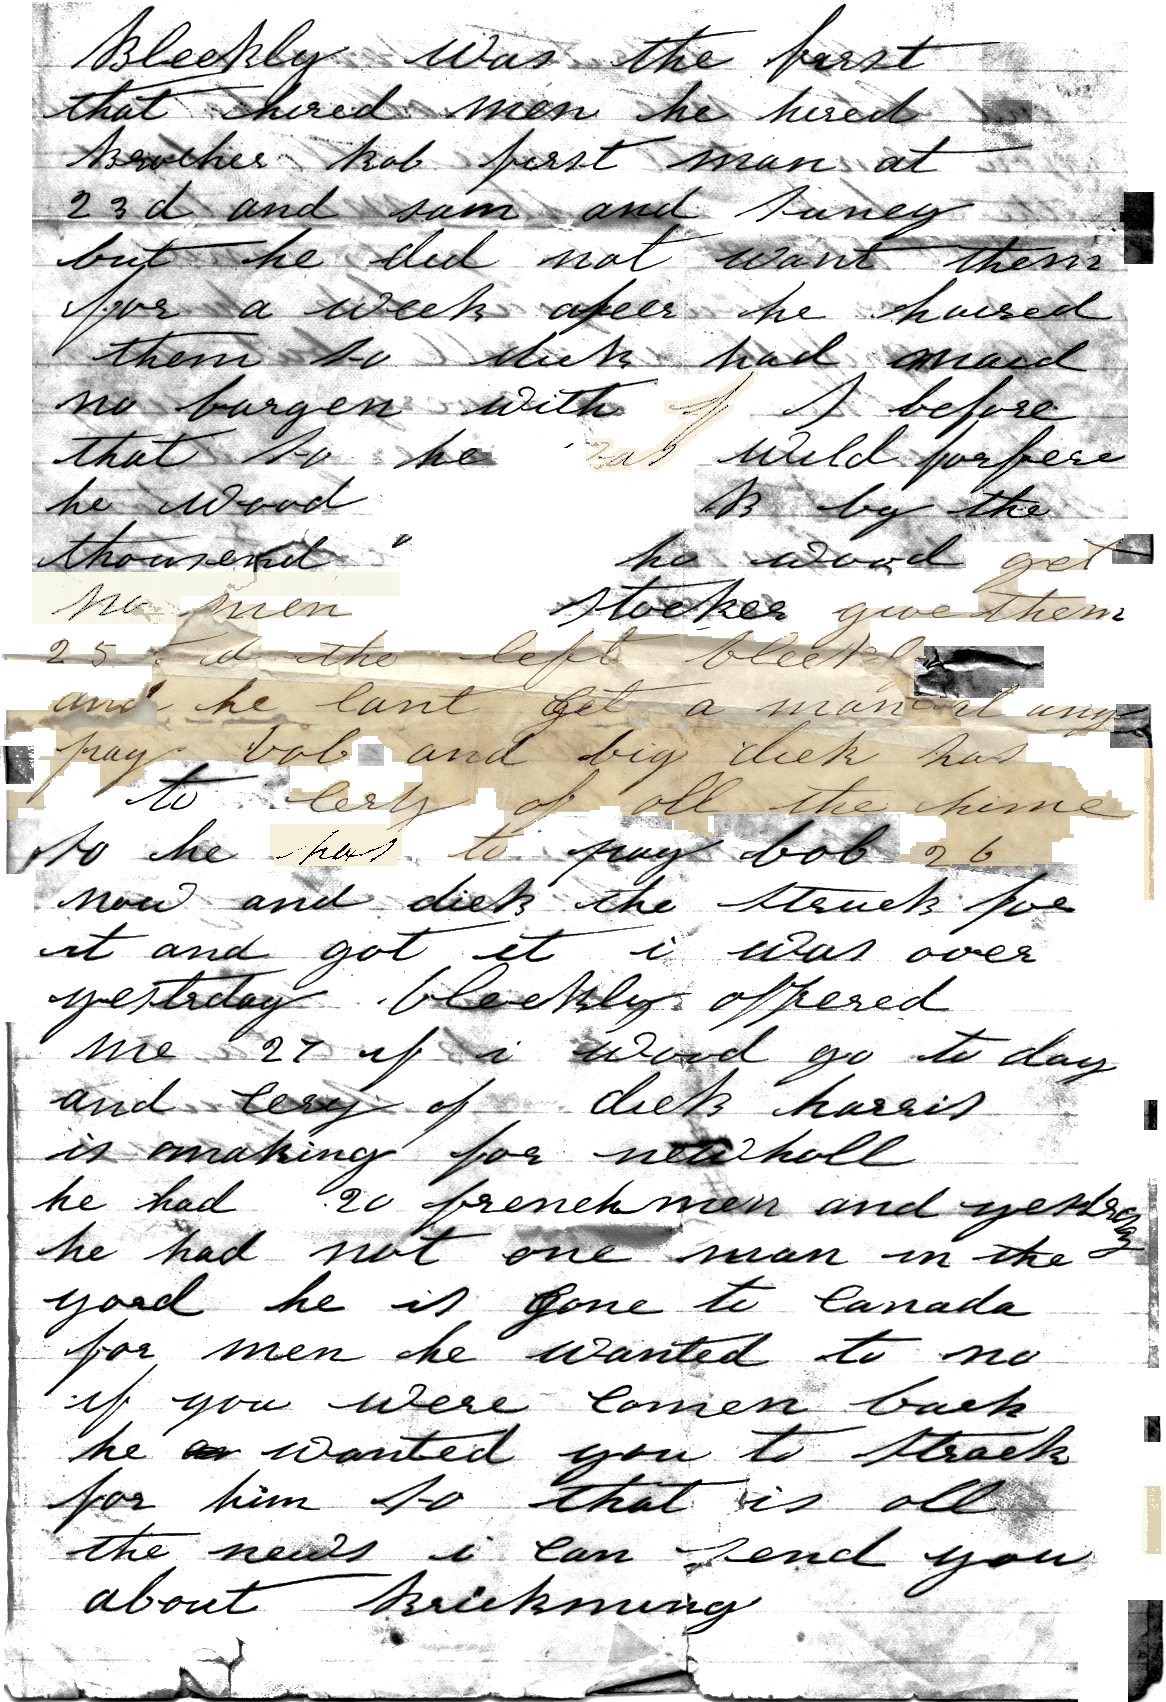 Bleekly was the furst
that hired men he hired
Brother Bob furst man at
23 d and sam and
but he did not want them
for a week afeer he haired
them so dick had maid
no bargen with I before
that so he was
he wood by the
thousend he wood get
no men stocker give them
25 the left bleekly
and he cant get a man at any
pay bob and big dick has
to of all the time
so he has to pay bob 26
now and dick the struck for
it and got it i was over
yestrday bleekly offered
me 27 if i wood go to day
and of dick harris
is making for newhall
he had 20 frenchmen and yestrday
he had not one man in the
yard he is gone to Canada
for men he wanted to no
if you were comen back
he wanted you to strack
for him so that is all
the news i can send you
about Brickming